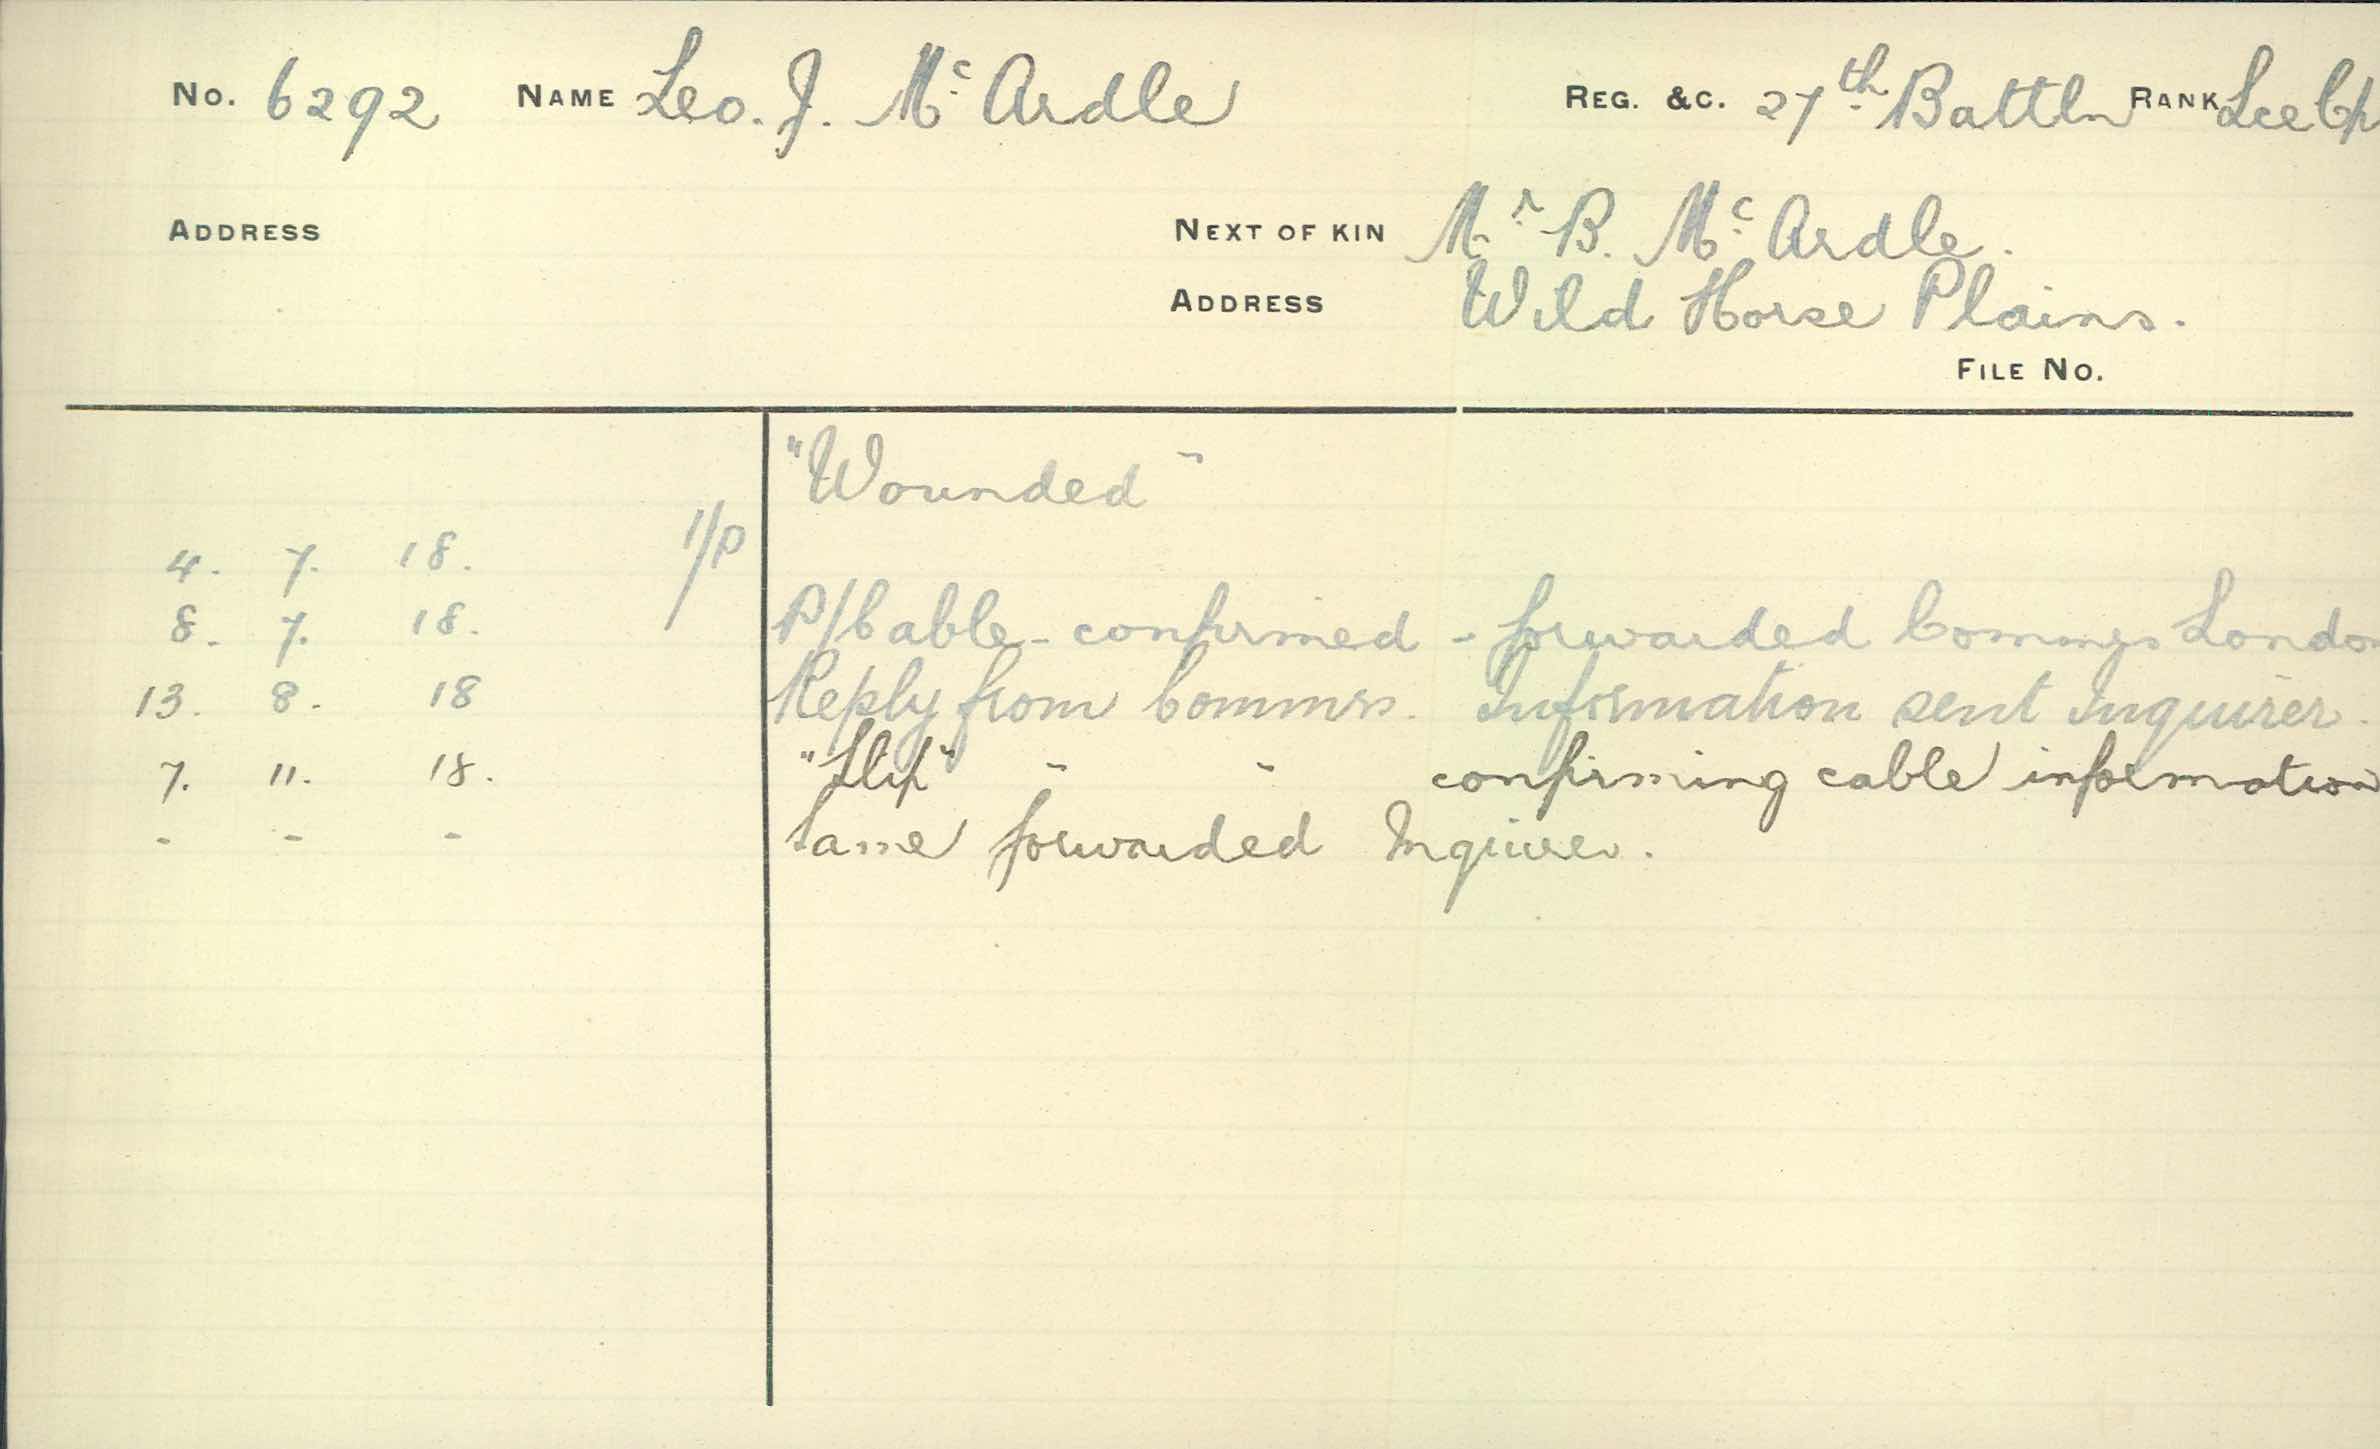 No. 6292 NAME Leo. J. Mc Ardle REG. &C. 27th Battln RANK Lce Cp
ADDRESS NEXT OF KIN Mr B. Mc Ardle.
ADDRESS Wild Horse Plains.
FILE NO.
"Wounded"
4. 7. 18. 1/P
8. 7. 18. P/Cable - confirmed - forwarded Commrs Londo
13. 8. 18 Reply from Commrs. Information sent Inquirer.
7. 11. 18. "Slip" " " confirming cable information
" " " Same forwarded Inquirer.